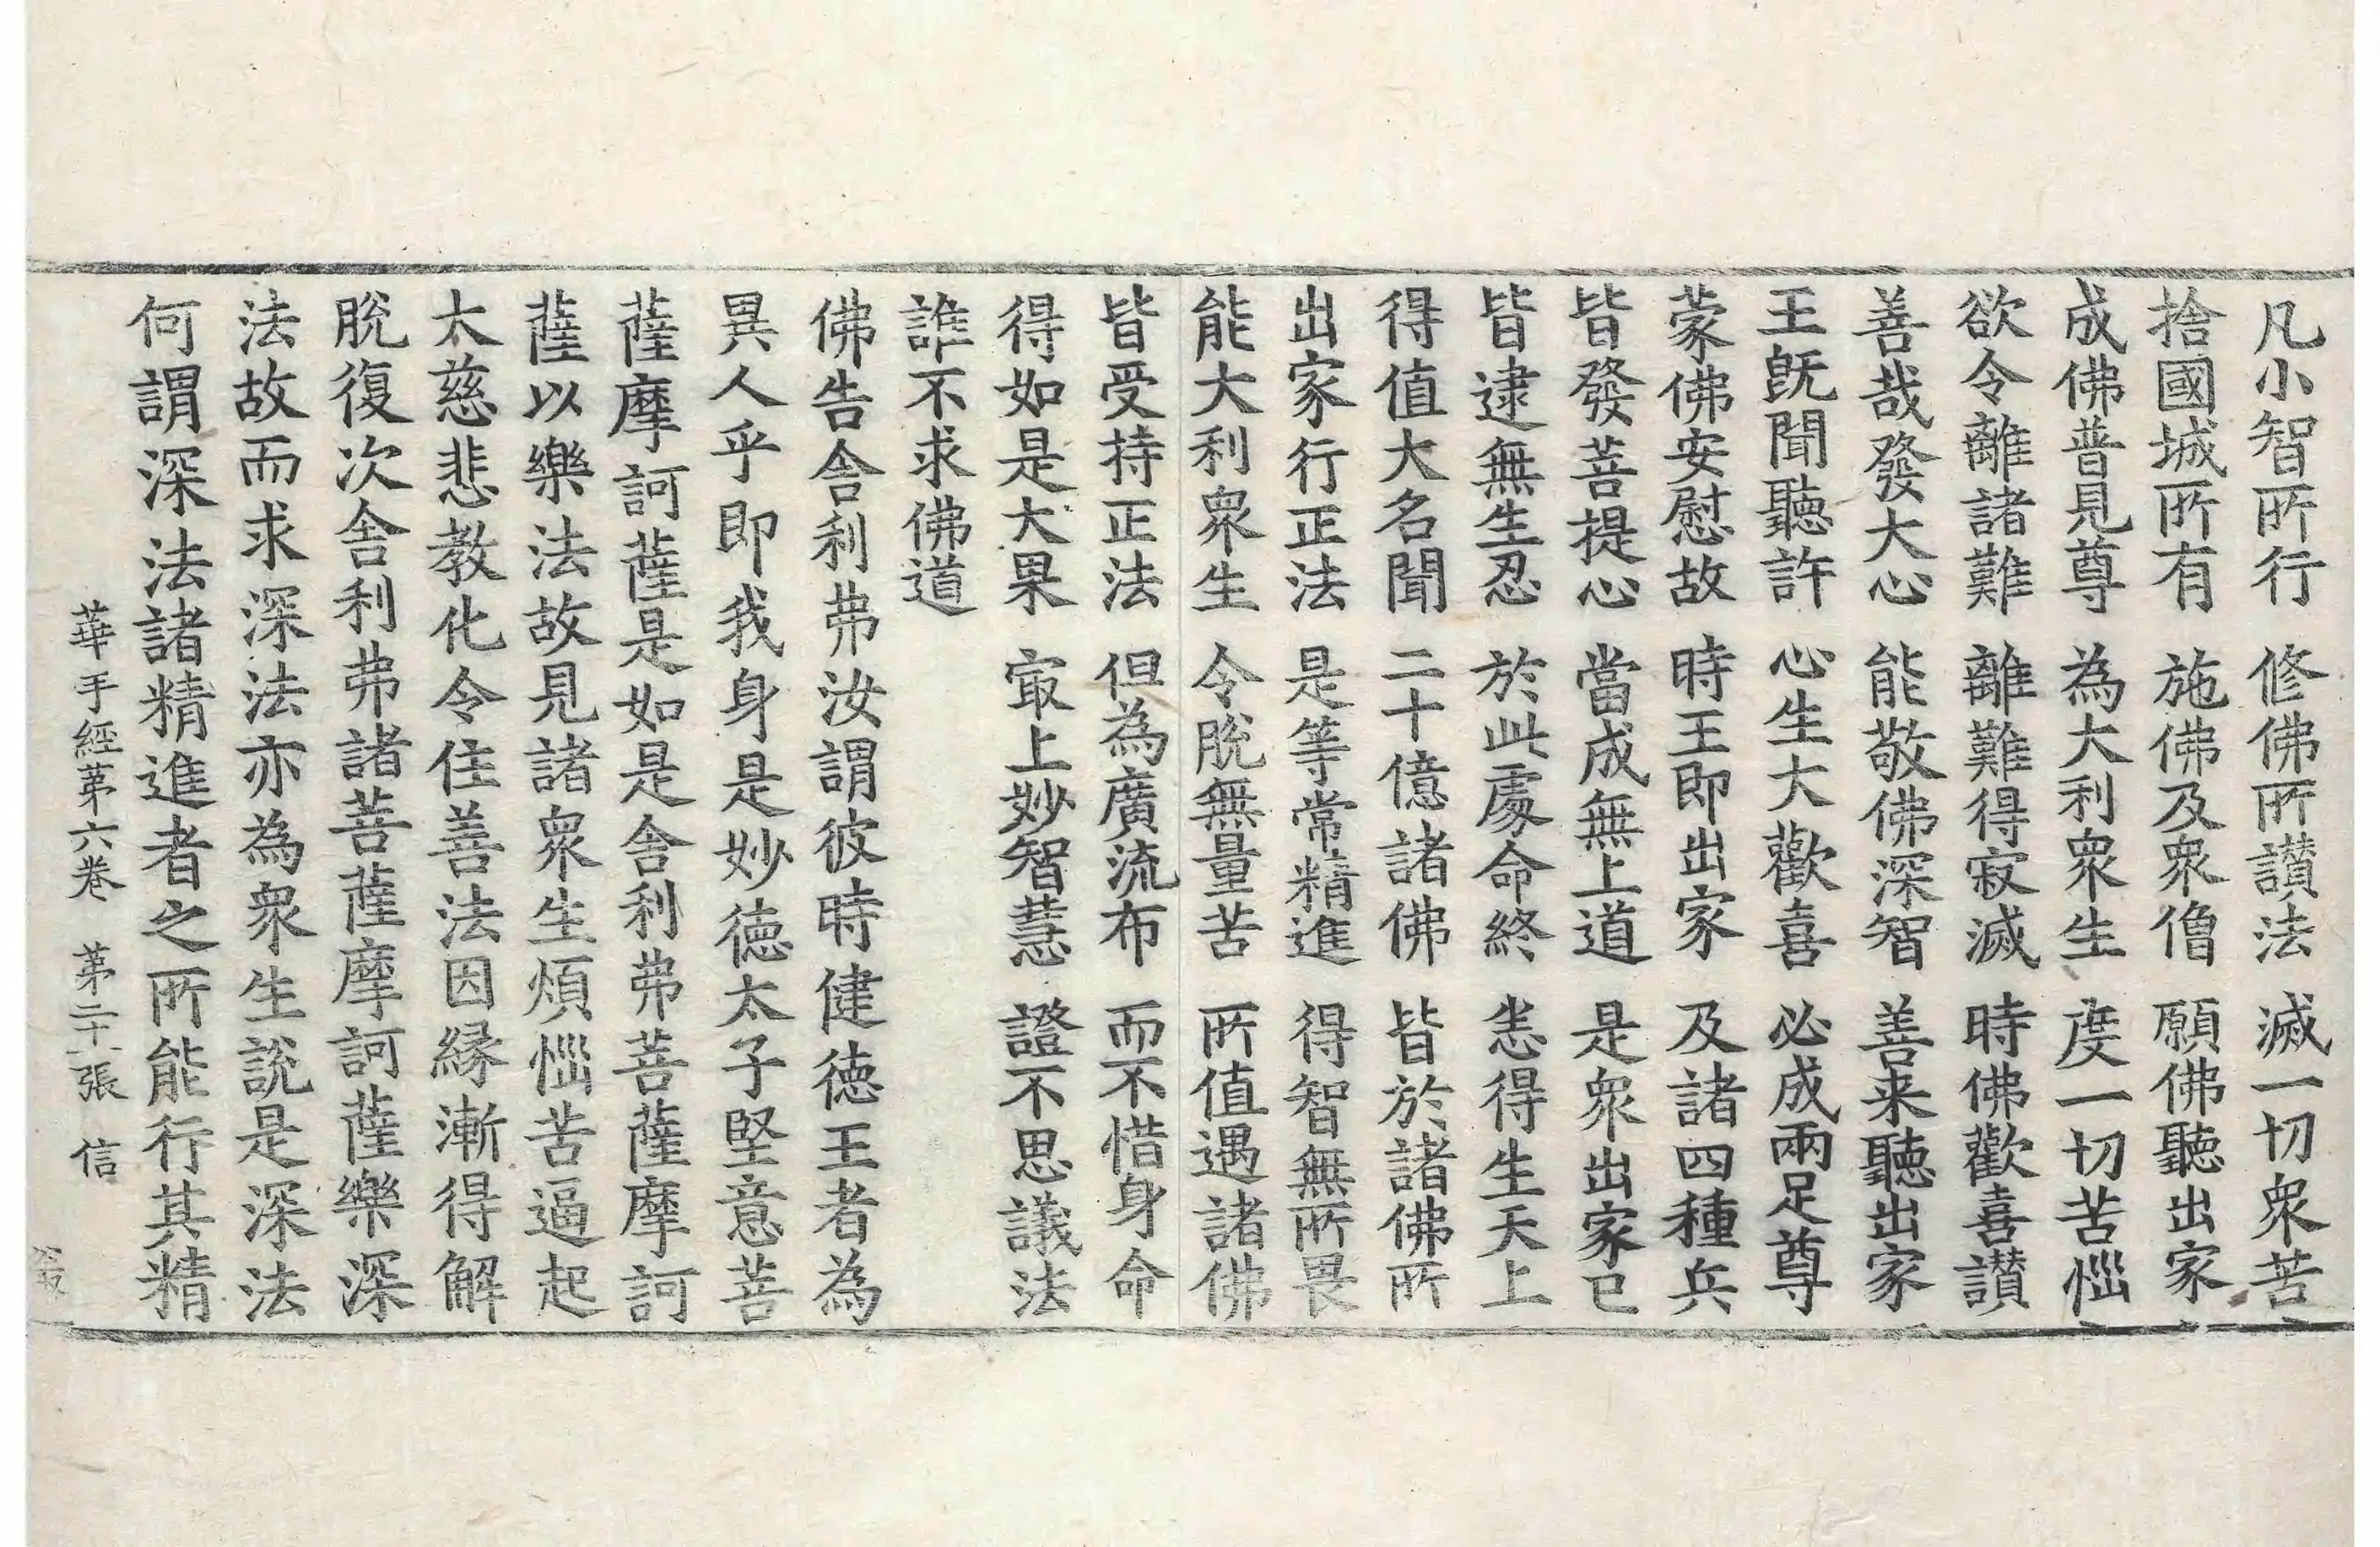 凡小智所行　修佛所讃法　滅一切衆苦
捨國城所有　施佛及衆僧　願佛聽出家
成佛普見尊　為大利衆生　度一切苦惱
欲令離諸難　離難得寂滅　時佛歡喜讃
善哉發大心　能敬佛深智　善来聽出家
王旣聞聽許　心生大歡喜　必成兩足尊
蒙佛安慰故　時王即出家　及諸四種兵
皆發菩提心　當成無上道　是衆出家已
皆逮無生忍　於此處命終　恙得生天上
得值大名聞　二十億諸佛　皆於諸佛所
出家行正法　是等常精進　得智無所畏
能大利衆生　令脫無量苦　所值遇諸佛
皆受持正法　但為廣流布　而不惜身命
得如是大果　㝡上妙智慧　證不思議法
誰不求佛道
佛告舎利弗汝謂彼時健德王者為
異人乎即我身是妙德太子堅意菩
薩摩訶薩是如是舎利弗菩薩摩訶
薩以樂法故見諸衆生煩惱苦逼起
太慈悲教化令住善法因緣漸得解
脫復次舎利弗諸菩薩摩訶薩樂深
法故而求深法亦為衆生說是深法
何謂深法諸精進者之所能行其精
華手經苐六卷　苐二十張　信